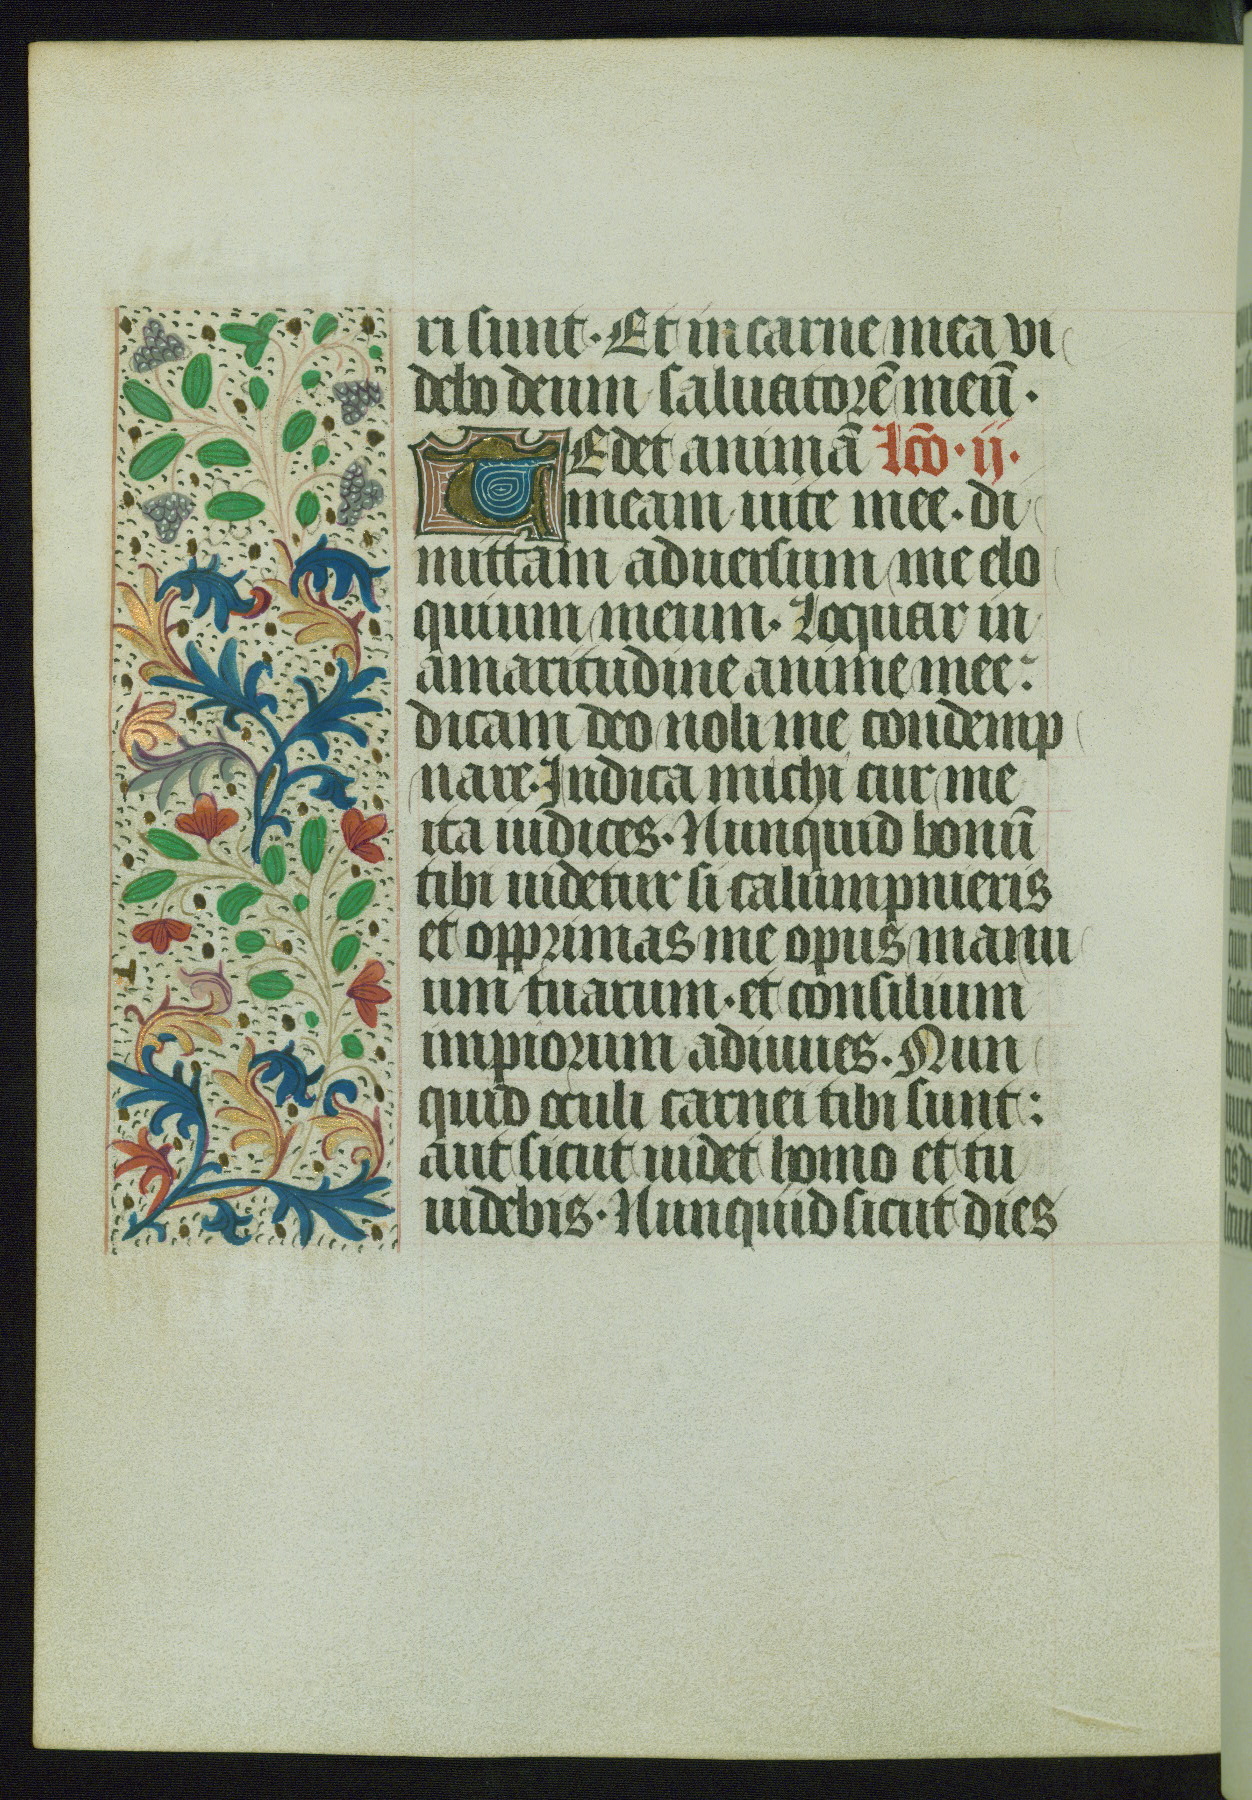 ri sunt. Et in carne mea vi
debo deum saluatorē meū.
TEdet animā lc̄o. ij.
meam uite mee. di
mittam aduersum me elo
quium meum. Loquar in
amaritudine anime mee:
dicam deo noli me condemp
nare. Indica michi cur me
ita iudices. Nunquid bonū
tibi uidetur si calumpnieris
et opprimas me opus manu
um tuarum. et consilium
impiorum adiuues. Nun
quid oculi carnei tibi sunt:
aut sicut uidet homo et tu
uidebis. Nunquid sicut dies